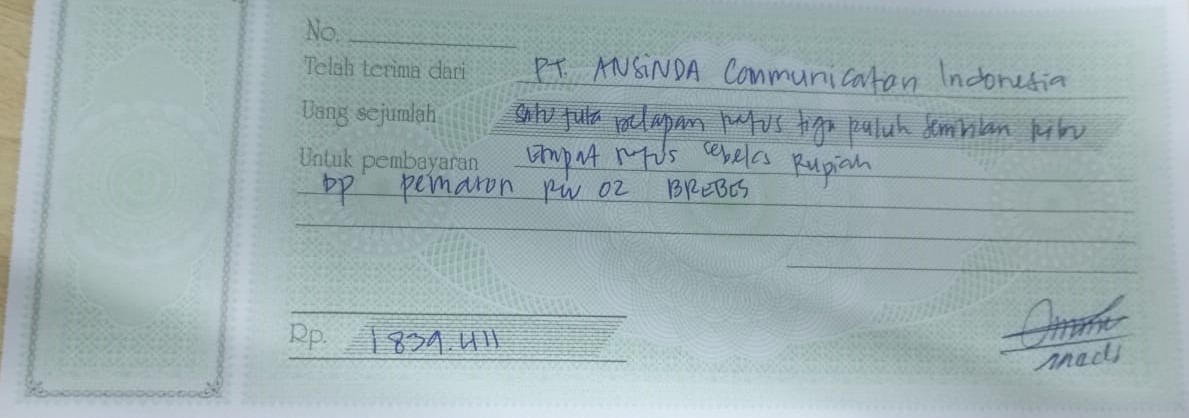 No.
Telah terima dari PT. ANSINDA Communication Indonesia
Uang sejumlah satu juta delapan ratus tiga puluh sembilan ribu
Untuk pembayaran Empat ratus sebelas Rupiah
DP pemaron RW 02 BREBES
Rp. 1839.411